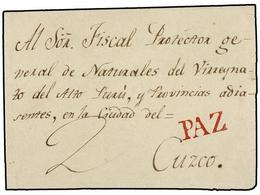 Al Señ.r Fiscal Protector ge-
neral de Naturales del Virreyna-
to del Alto Perú, y Provincias adia-
sentes, en la Ciudad del=
PAZ
2
Cuzco.